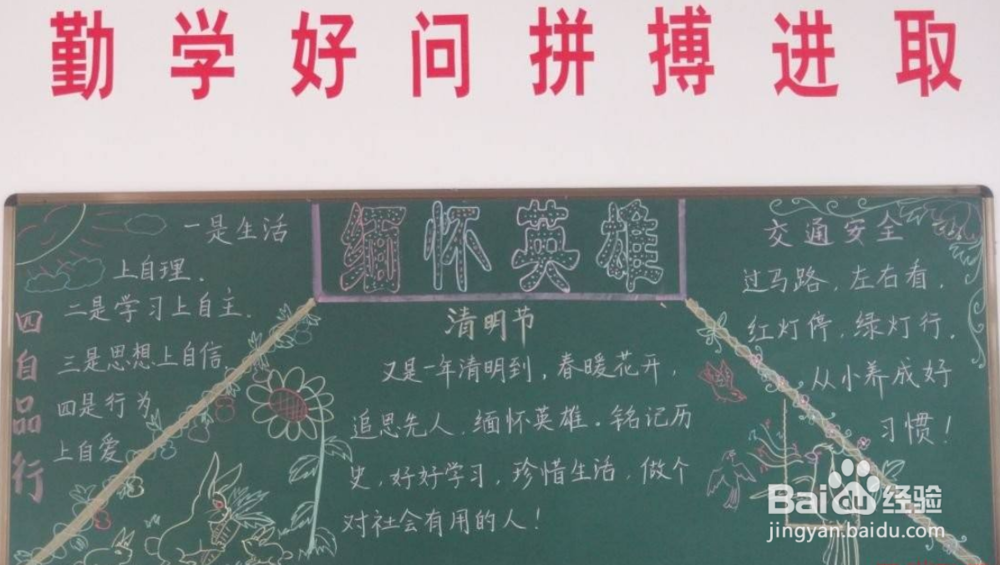 勤学好问拼搏进取
缅怀英雄
四自品行
一是生活
上自理.
二是学习上自主.
三是思想上自信
四是行为
上自爱
清明节
又是一年清明到,春暖花开,
追思先人、缅怀英雄。铭记历
史,好好学习,珍惜生活,做个
对社会有用的人!
交通安全
过马路,左右看,
红灯停,绿灯行,
从小养成好
习惯!
Baidu经验
jingyan.baidu.com